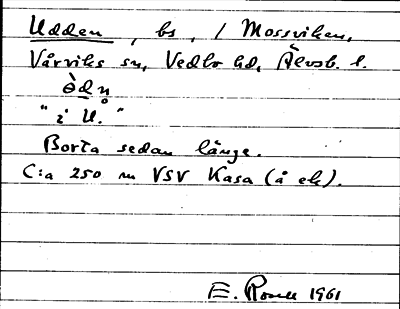 Udden, bs, / Mossviken,
Vårviks sn, Vedbo hd, Älvsb. l.
ùdn
"i U."
Borta sedan länge.
C:a 250 m VSV Kasa (å ek).
E. 1961